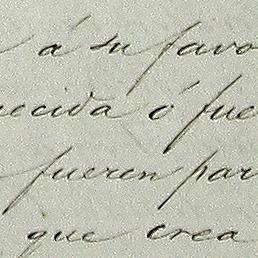 á su favo
ecida ó fue
fueren par
que crea